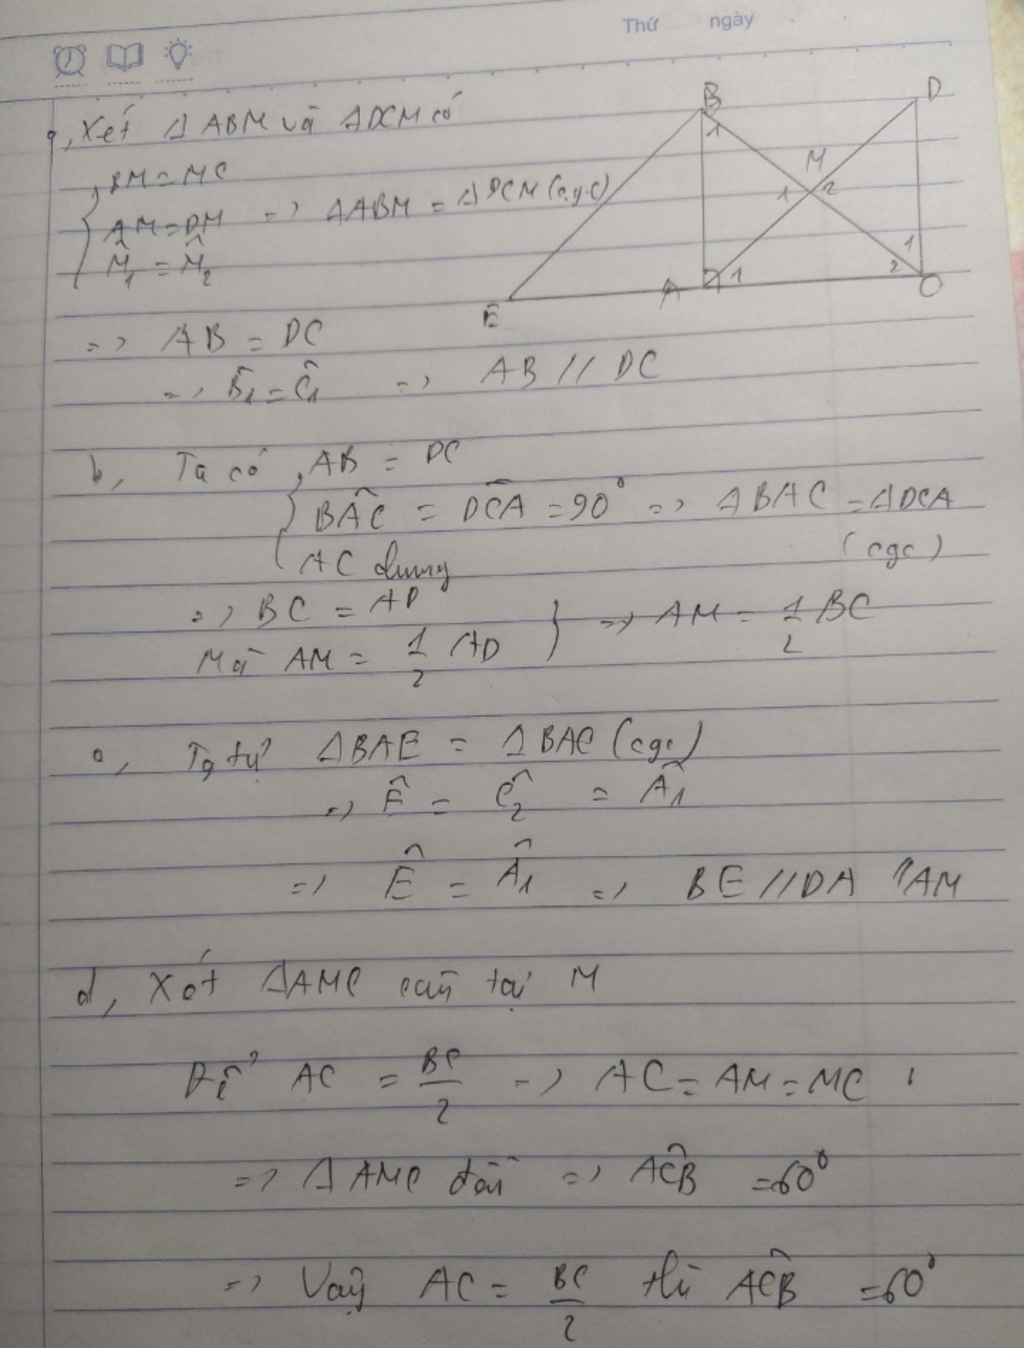 Thứ ngày
a, Xét Δ ABM và ΔDCM có
BM = MC
AM = DM => ΔABM = ΔDCM (c.g.c)
M̂₁ = M̂₂
B
D
M
1
1
2
1
A
1
2
C
E
=> AB = DC
=> B̂₁ = Ĉ₁ => AB // DC
b, Ta có AB = DC
BÂC = DĈA = 90° => ΔBAC = ΔDCA
AC chung (cgc)
=> BC = AD
Mà AM = 1/2 AD => AM = 1/2 BC
c, Tg tự ΔBAE = ΔBAC (cgc)
=> Ê = Ĉ₂ = Â₁
=> Ê = Â₁ => BE // DA //AM
d, Xét ΔAMC cân tại M
Để AC = BC/2 => AC = AM = MC
=> ΔAMC đều => AĈB = 60°
=> Vậy AC = BC/2 thì AĈB = 60°